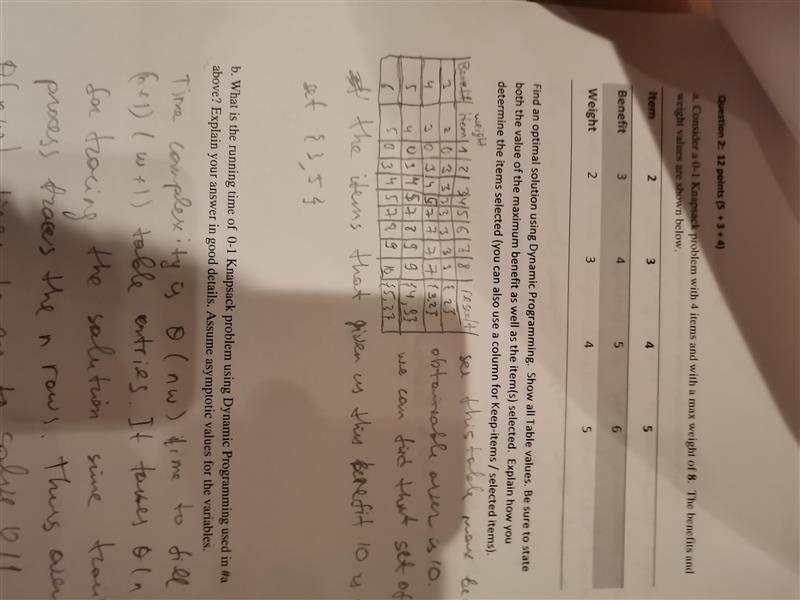 Question 2: 12 points (5 + 3 + 4)
a. Consider a 0-1 Knapsack problem with 4 items and with a max weight of 8. The benefits and
weight values are shown below.
Item 2 3 4 5
Benefit 3 4 5 6
Weight 2 3 4 5
Find an optimal solution using Dynamic Programming. Show all Table values. Be sure to state
both the value of the maximum benefit as well as the item(s) selected. Explain how you
determine the items selected (you can also use a column for Keep-items / selected items).
weight
Benefit item 1 2 3 4 5 6 7 8 result
3 2 0 3 3 3 3 3 3 3 { 2}
4 3 0 3 4 4 7 7 7 7 {3,2}
5 4 0 3 4 5 7 8 9 9
6 5 0 3 4 5 7 8 9 10
see this table max be
obtaineable is 10.
we can find that set of
the items that given us this benefit 10 is
set {3,5}
b. What is the running time of 0-1 Knapsack problem using Dynamic Programming used in #a
above? Explain your answer in good details. Assume asymptotic values for the variables.
Time complexity is θ(nw) time to fill
(n+1) (w+1) table entries. It takes θ(n
for tracing the solution sine
process traces the n rows. Thus